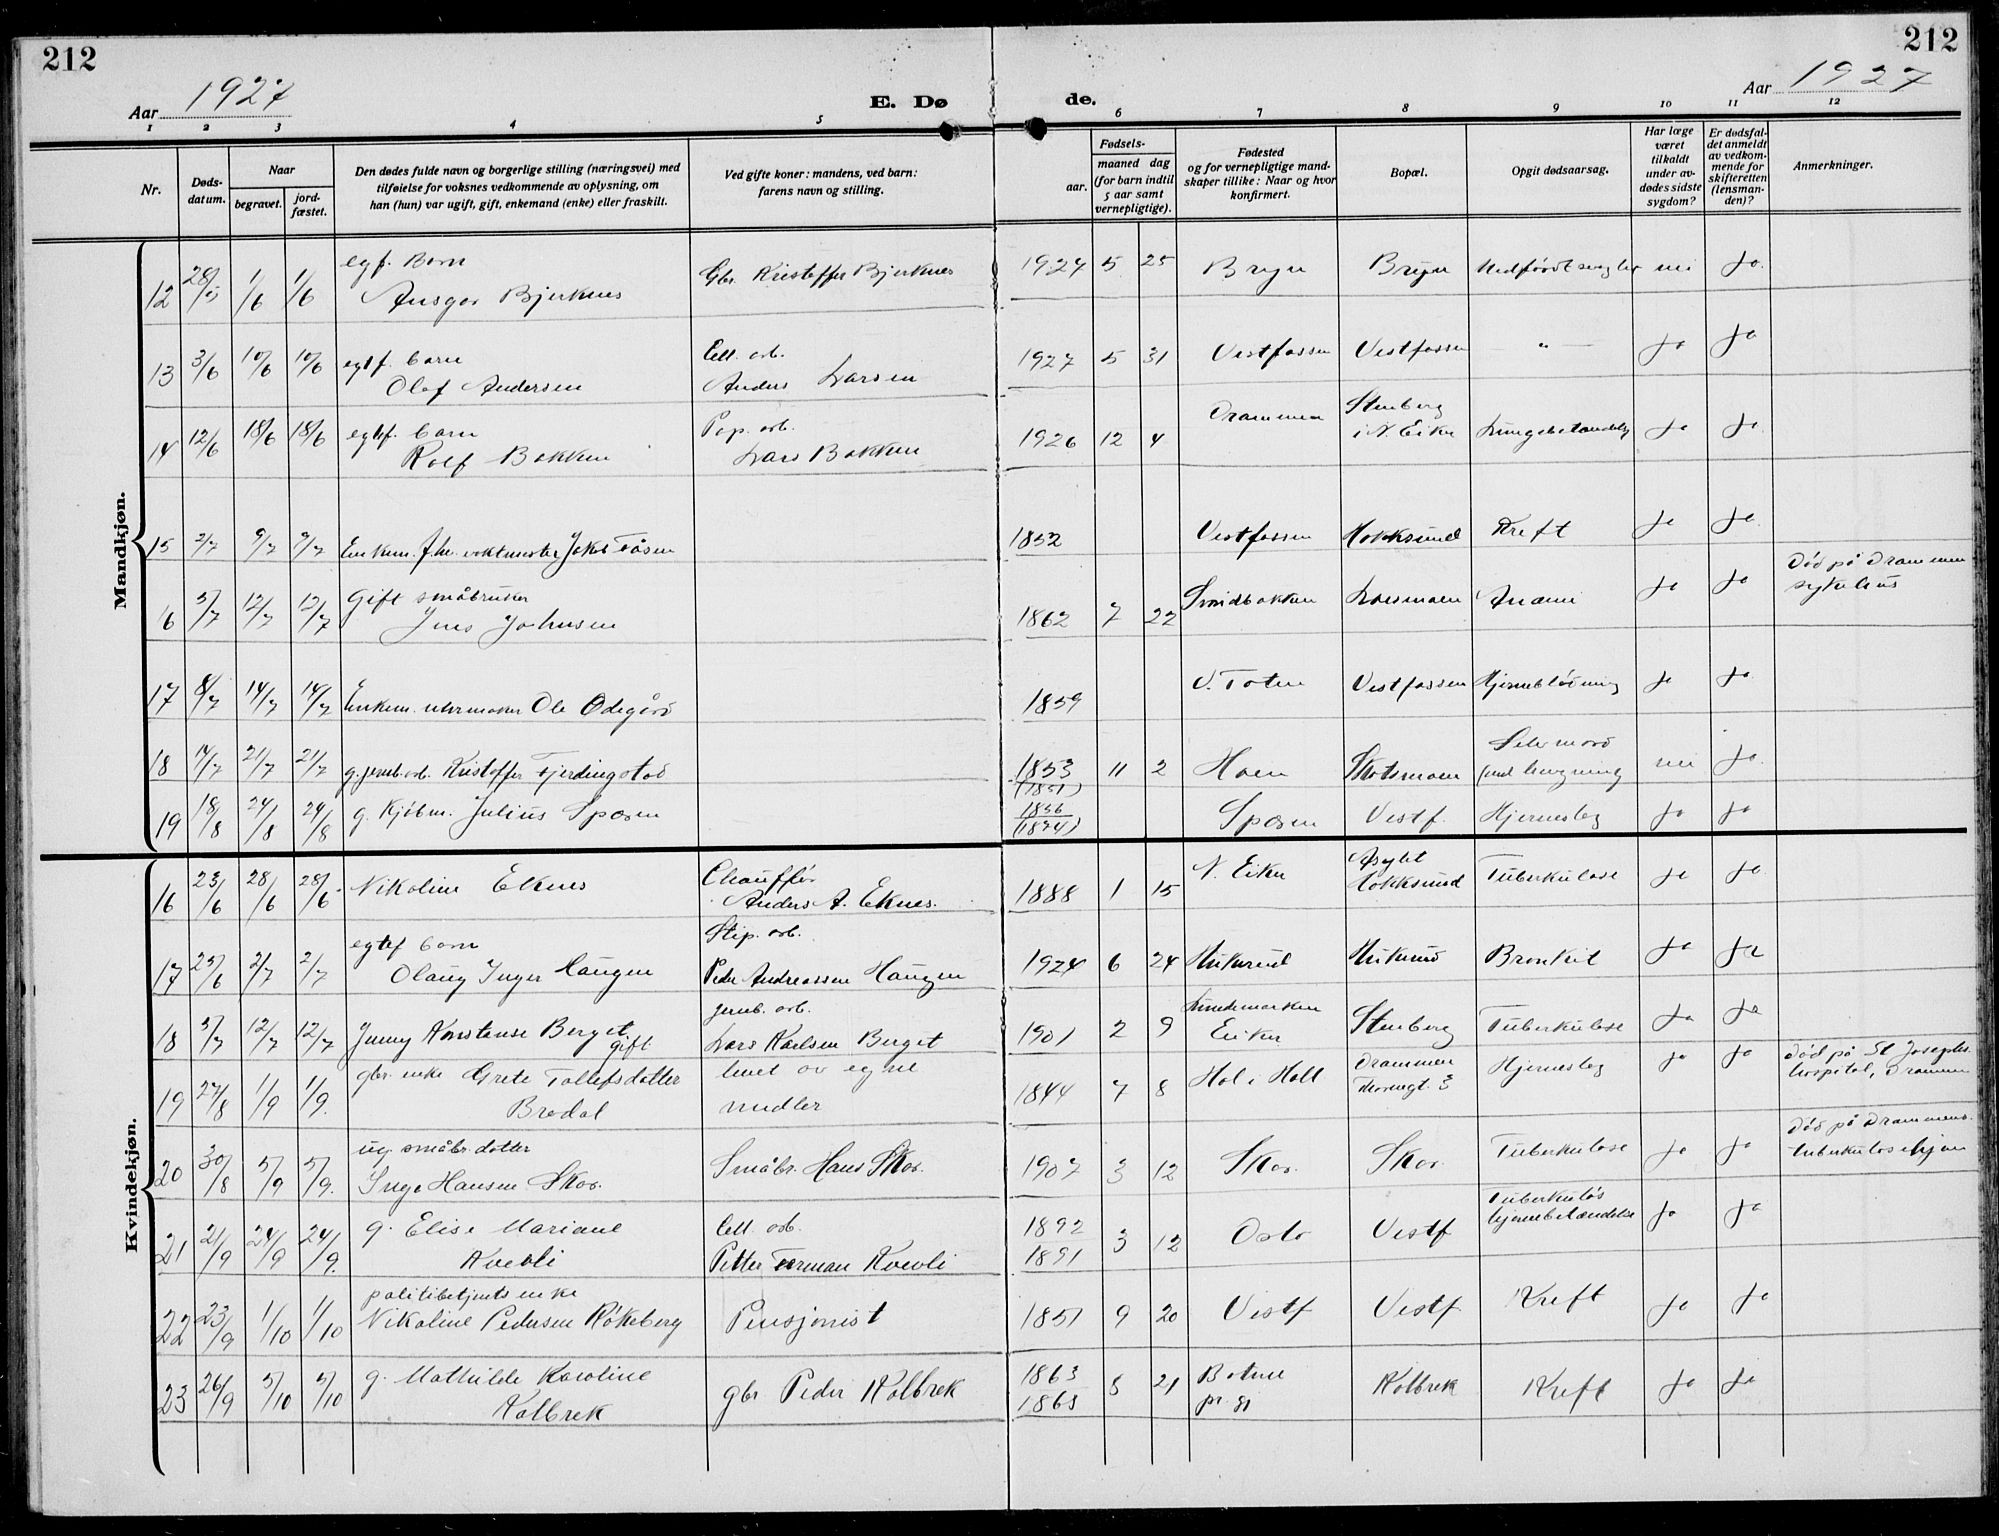 212
212
Aar 1927
E. Dø
de.
Aar 1927
1 2 3 4 5 6 7 8 9 10 11 12
Nr.
Døds-
datum.
Naar
begravet.
jord-
fæstet.
Den dødes fulde navn og borgerlige stilling (næringsvei) med
tilføielse for voksnes vedkommende av oplysning, om
han (hun) var ugift, gift, enkemand (enke) eller fraskilt.
Ved gifte koner: mandens, ved barn:
farens navn og stilling.
Fødsels-
aar.
maaned dag
(for barn indtil
5 aar samt
vernepligtige).
Fødested
og for vernepligtige mand-
skaper tillike: Naar og hvor
konfirmert.
Bopæl.
Opgit dødsaarsag.
Har læge
været
tilkaldt
under av-
dødes sidste
sygdom?
Er dødsfal-
det anmeldt
av vedkom-
mende for
skifteretten
(lensman-
den)?
Anmerkninger.
Mandkjøn.
12 28/5 1/6 1/6 egf. Barn
Ansgar Bjerknes
Gbr. Kristoffer Bjerknes
1927 5 25 Bryn Bryn nei Ja.
13 3/6 10/6 10/6 egtf. barn
Olaf Andersen
Cell. arb.
Anders Larsen
1927 5 31 Vestfossen Vestfossen — " — Ja Ja
14 12/6 18/6 18/6 egtef. barn
Rolf Bakken
Pap. arb.
Lars Bakken
1926 12 4 Drammen Stenberg
i N. Eiker Lungebetændelse Ja Ja.
15 2/7 9/7 9/7 Enkem. f.hv. voktmester Jakob Fåsen
1832 Vestfossen Hokksund Kreft Ja Ja.
6 5/7 12/7 12/7 Gift småbruker
Jens Johnsen
1862 7 22 Smidbakken Larsmoen Anæmi Ja Ja Död på Drammen
sykehus
17 8/7 14/7 14/7 Enkem. uhrmaker Ole Ödegård
1859 V. Toten Vestfossen Hjerneblödning Ja Ja.
18 14/7 21/7 21/7 g. jernb.arb. Kristoffer Fjerdingstad
1853
(1851) 11 2 Hoen Skotsmoen Selvmord
(ved hengning nei Ja.
19 18/8 24/8 24/8 g. Kjöbm. Julius Sporen
1836
(1874) Sporen Vestf. Hjerneslag Ja Ja
Kvindekjøn.
16 23/6 28/6 28/6. Nikoline Eknes
Chaufför
Anders A. Eknes.
1888 1 15 N. Eiker Asylet
Hokksund Tuberkulose Ja Ja.
17 25/6 2/7 2/7 egtef barn
Olaug Inger Haugen
Stip. arb.
Peder Andreassen Haugen
1924 6 24 Bronkit Ja Ja
18 5/7 12/7 12/7 Jenny Konstanse Berget
gift
Jernb. arb.
Lars Karlsen Berget
1901 2 9 Lundemarken
Eiker Stenberg Tuberkulose Ja Ja
19 27/8 1/9 1/9. gbr. enke Grete Tollefsdatter
Bredal
levet av egne
midler
1844 7 8 Hol i Holt Drammen
Hjerneslag Ja Ja Död på St Josephs
hospital, Drammen
20 30/8 5/9 5/9. ug. småbr. datter
Inga Hansen Skar.
Småbr. Hans Skar.
1907 3 12 Skar. Skar. Tuberkulose Ja Ja Död på Drammens
tuberkulosehjem
21 21/9 24/9 24/9. g. Elise Mariane
Kverli
Cell. arb.
Petter Ferman Kverli
1892
1891 3 12 Oslo Vestf Tuberkulös
hjernebetændelse Ja Ja
22 23/9 1/10 1/10 politibetjents enke
Nikoline Pedersen Råkeberg
Pensjonist
1851 9 20 Vestf Vestf. Kreft Ja Ja
23 26/9 5/10 5/10 g. Mathilde Karoline
Kolbrek
gbr Peder Kolbrek
1863
1865 5 21 Botne
pr. gj Kolbrek Kreft Ja Ja